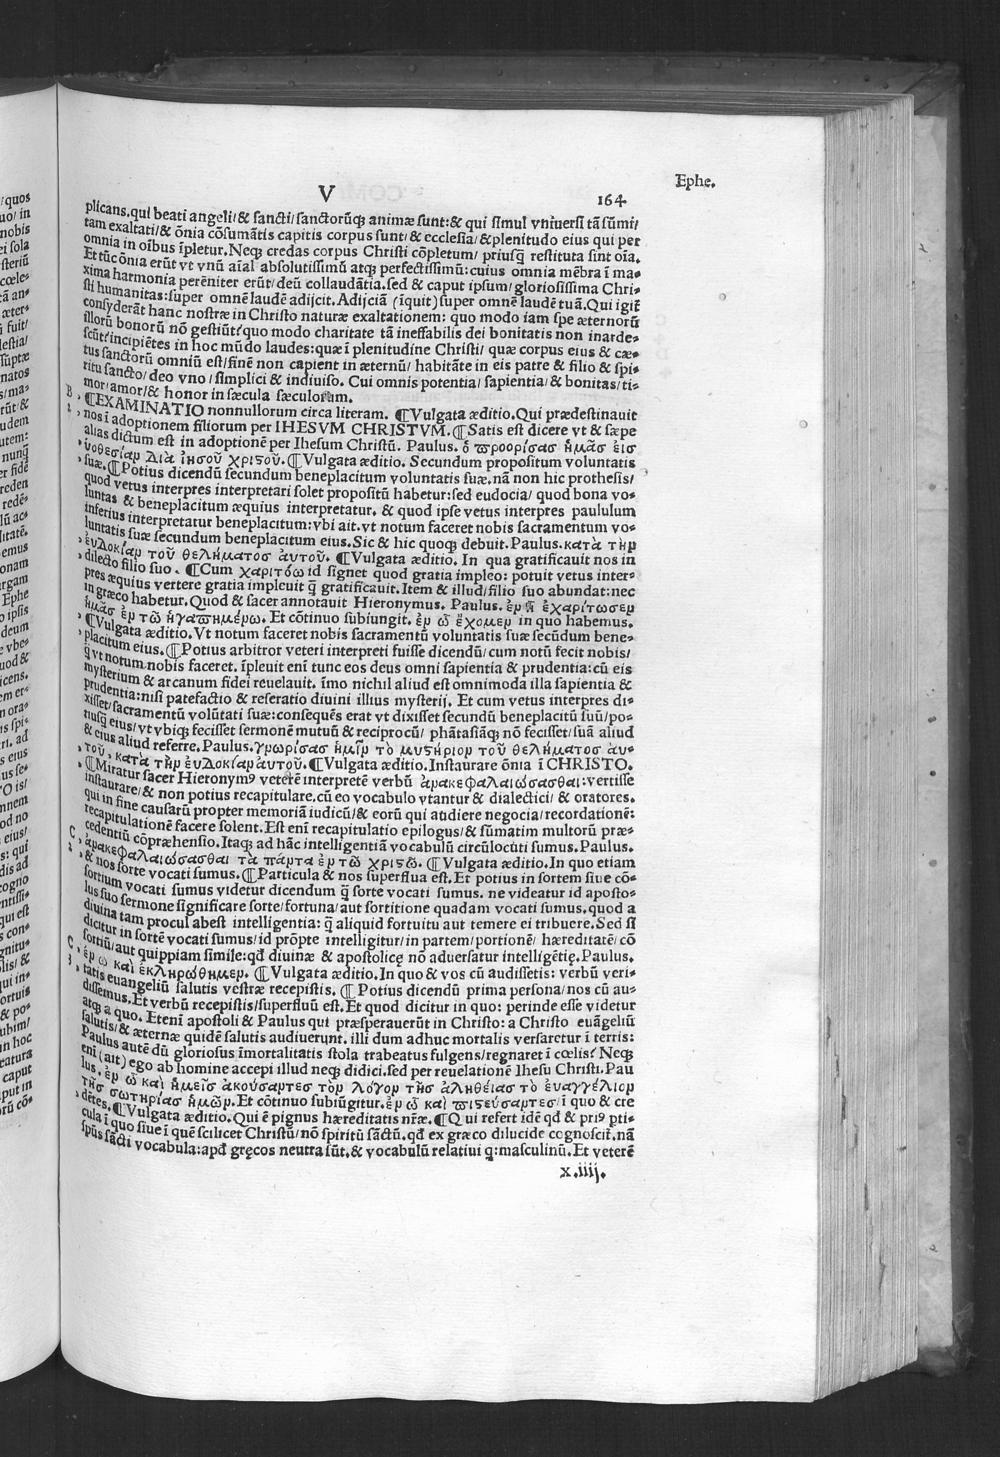 Ephe.
V
164
plicans.qui beati angeli/& sancti/sanctorūq; animæ sunt:& qui simul vniuersi tā sūmi/
tam exaltati/& ōnia cōsumātis capitis corpus sunt/& ecclesia/& plenitudo eius qui per
omnia in oībus īpletur.Neq; credas corpus Christi cōpletum/ priusq̄ restituta sint oīa.
Et tūc ōnia erūt vt vnū aīal absolutissimū atq; perfectissimū:cuius omnia mēbra ī ma-
xima harmonia perēniter erūt/deū collaudātia.sed & caput ipsum/gloriosissima Chri-
sti humanitas:super omnē laudē adijcit.Adijciā (īquit) super omnē laudē tuā.Qui igit̄
consyderāt hanc nostræ in Christo naturæ exaltationem: quo modo iam spe æternorū
illorū bonorū nō gestiūt/quo modo charitate tā ineffabilis dei bonitatis non inarde-
scūt/incipiētes in hoc mūdo laudes:quæ ī plenitudine Christi/ quæ corpus eius & cæ-
tus sanctorū omniū est/finē non capient in æternū/ habitāte in eis patre & filio & spi-
ritu sancto/deo vno/simplici & indiuiso. Cui omnis potentia/ sapientia/& bonitas/ti-
mor/amor/& honor in sæcula sæculorum.
B . ¶EXAMINATIO nonnullorum circa literam. ¶Vulgata æditio.Qui prædestinauit
1 , nos ī adoptionem filiorum per IHESVM CHRISTVM.¶Satis est dicere vt & sæpe
alias dictum est in adoptionē per Ihesum Christū. Paulus. ὁ προορίσας ἡμᾶς εἰς
, υἱοθεσίαν διὰ ἰησοῦ χριστοῦ.¶Vulgata æditio. Secundum propositum voluntatis
, suæ.¶Potius dicendū secundum beneplacitum voluntatis suæ.nā non hic prothesis/
quod vetus interpres interpretari solet propositū habetur:sed eudocia/ quod bona vo-
luntas & beneplacitum æquius interpretatur. & quod ipse vetus interpres paululum
inferius interpretatur beneplacitum:vbi ait.vt notum faceret nobis sacramentum vo-
luntatis suæ secundum beneplacitum eius.Sic & hic quoq; debuit.Paulus.κατὰ τὴν
, ἐυδοκίαν τοῦ θελήματος ἀυτοῦ. ¶Vulgata æditio. In qua gratificauit nos in
, dilecto filio suo . ¶Cum χαριτόω id signet quod gratia impleo: potuit vetus inter-
pres æquius vertere gratia impleuit q̄ gratificauit.Item & illud/filio suo abundat:nec
in græco habetur.Quod & sacer annotauit Hieronymus. Paulus. ἐν ᾗ ἐχαρίτωσεν
, ἡμᾶς ἐν τῶ ἠγαπημένω. Et cōtinuo subiungit. ἐν ὧ ἔχομεν in quo habemus.
, ¶Vulgata æditio. Vt notum faceret nobis sacramentū voluntatis suæ secūdum bene-
, placitum eius.¶Potius arbitror veteri interpreti fuisse dicendū/cum notū fecit nobis/
q̄ vt notum nobis faceret. īpleuit enī tunc eos deus omni sapientia & prudentia:cū eis
mysterium & arcanum fidei reuelauit. īmo nichil aliud est omnimoda illa sapientia &
prudentia:nisi patefactio & reseratio diuini illius mysterij. Et cum vetus interpres di-
xisset/sacramentū volūtati suæ:consequēs erat vt dixisset secundū beneplacitū suū/po-
tiusq̄ eius/vt vbiq; fecisset sermonē mutuū & reciprocū/ phātasiāq; nō fecisset/suā aliud
& eius aliud referre.Paulus.γνωρίσας ἡμῖν τὸ μυστήριον τοῦ θελήματος ἀυ-
, τοῦ, κατὰ τὴν ἐυδοκίαν ἀυτοῦ.¶Vulgata æditio.Instaurare ōnia ī CHRISTO.
, ¶Miratur sacer Hieronymꝰ veterē interpretē verbū ἀνακεφαλαιώσασθαι:vertisse
instaurare/& non potius recapitulare.cū eo vocabulo vtantur & dialectici/ & oratores.
qui in fine causarū propter memoriā iudicū/& eorū qui audiere negocia/recordationē:
recapitulationē facere solent.Est enī recapitulatio epilogus/& sūmatim multorū præ-
cedentiū cōpræhensio.Itaq; ad hāc intelligentiā vocabulū circūlocuti sumus.Paulus.
C , ἀνακεφαλαιώσασθαι τὰ πάντα ἐν τῶ χριστῶ. ¶Vulgata æditio.In quo etiam
2 , & nos sorte vocati sumus.¶Particula & nos superflua est.Et potius in sortem siue cō-
sortium vocati sumus videtur dicendum q̄ sorte vocati sumus. ne videatur id aposto-
lus suo sermone significare sorte/fortuna/aut sortitione quadam vocati sumus.quod a
diuina tam procul abest intelligentia: q̄ aliquid fortuitu aut temere ei tribuere.Sed si
dicitur in sortē vocati sumus/id prōpte intelligitur/in partem/portionē/ hæreditatē/cō
sortiū/aut quippiam simile:qđ diuinæ & apostolicę nō aduersatur intelligētię.Paulus.
C , ἐν ὧ καὶ ἐκληρώθημεν. ¶Vulgata æditio. In quo & vos cū audissetis: verbū veri-
3 , tatis euangeliū salutis vestræ recepistis.¶Potius dicendū prima persona/nos cū au-
dissemus.Et verbū recepistis/superfluū est.Et quod dicitur in quo: perinde esse videtur
atq; a quo. Etenī apostoli & Paulus qui præsperauerūt in Christo: a Christo euāgeliū
salutis/& æternæ quidē salutis audiuerunt. illi dum adhuc mortalis versaretur ī terris:
Paulus autē dū gloriosus īmortalitatis stola trabeatus fulgens/regnaret ī cœlis/ Neq;
enī (ait) ego ab homine accepi illud neq; didici.sed per reuelationē Ihesu Christi.Pau
lus. ἐν ὧ καὶ ἡμεῖς ἀκούσαντες τὸν λόγον τῆς ἀληθείας τὸ ἐυαγγέλιον
, τῆς σωτηρίας ἡμῶν.Et cōtinuo subiūgitur.ἐν ὧ καὶ πιστεύσαντες/ī quo & cre
, dētes.¶Vulgata æditio.Qui ē pignus hæreditatis nr̄æ.¶Qui refert idē qđ & priꝰ pti-
cula ī quo siue ī quē scilicet Christū/nō spiritū sāctū.qđ ex græco dilucide cognoscit̄.nā
spūs sācti vocabula:apđ gręcos neutra sūt.& vocabulū relatiui q:masculinū.Et veterē
x.iiij.